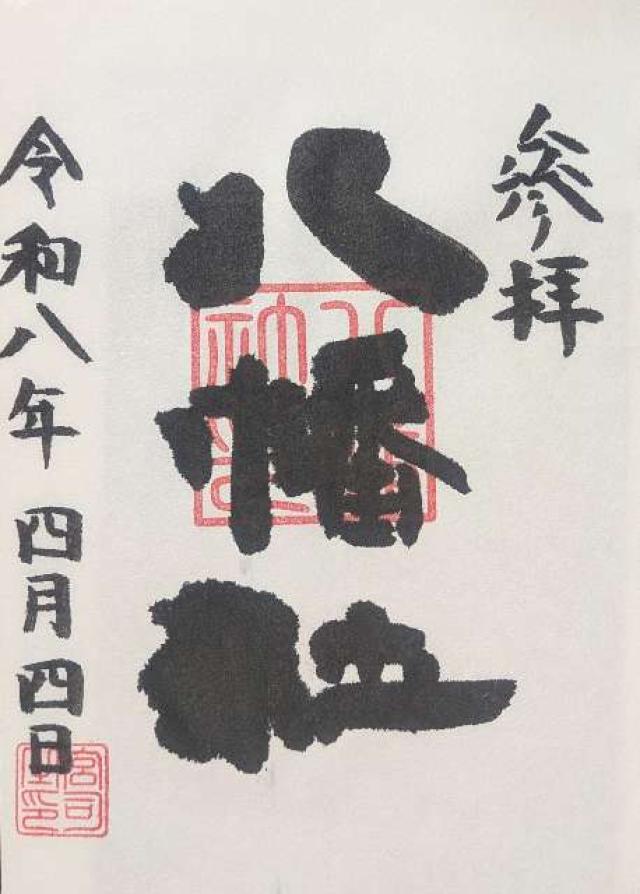 参拝
八幡社
令和八年四月四日
宮司